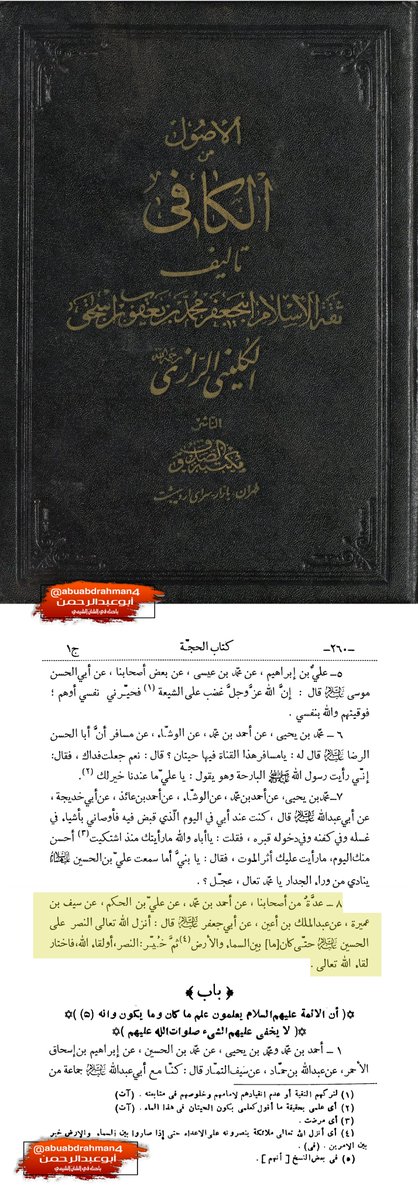 الأصول
من
الكافي
تأليف
ثقة الإسلام أبي جعفر محمد بن يعقوب بن إسحق
الكليني الرازي رحمه الله
الناشر
مكتبة الصدوق
طهران - بازار سراى اردیبهشت
@abuabdrahman4
أبوعبدالرحمن
باحث في الشأن الشيعي
-٢٦٠- كتاب الحجّة ج١
٥ـ عليُّ بن إبراهيم ، عن محمد بن عيسى ، عن بعض أصحابنا ، عن أبي الحسن
موسى عليه السلام قال : إنَّ الله عزَّوجلَّ غضب على الشيعة (١) فخيّرني نفسي أوهم ؛
فوقيتهم والله بنفسي .
٦ ـ محمد بن يحيى ، عن أحمد بن محمد ، عن الوشّاء ، عن مسافر أنَّ أبا الحسن
الرضا عليه السلام قال له : يامسافر هذا القناة فيها حيتان ؟ قال : نعم جعلت فداك ، فقال:
إنّي رأيت رسول الله صلى الله عليه وآله البارحة وهو يقول : يا عليُّ ما عندنا خير لك (٢).
٧ـ محمد بن يحيى، عن أحمد بن محمد ، عن الوشّاء ، عن أحمد بن عائذ ، عن أبي خديجة ،
عن أبي عبدالله عليه السلام قال ، كنت عند أبي في اليوم الّذي قبض فيه فأوصاني بأشياء في
غسله وفي كفنه وفي دخوله قبره ، فقلت : ياأباه والله مارأيتك منذ اشتكيت (٣) أحسن
منك اليوم، مارأيت عليك أثر الموت ، فقال : يا بنيَّ أما سمعت عليَّ بن الحسين عليه السلام
ينادي من وراء الجدار يا محمد تعال ، عجّل ؟ .
٨ ـ عدَّةٌ من أصحابنا ، عن أحمد بن محمد ، عن عليّ بن الحكم ، عن سيف بن
عميرة ، عن عبدالملك بن أعين ، عن أبي جعفر عليه السلام قال : أنزل الله تعالى النصر على
الحسين عليه السلام حتّى كان [ما] بين السماء والأرض (٤) ثمَّ خيّر: النصر، أولقاء الله، فاختار
لقاء الله تعالى .
﴿ باب ﴾
☆( أن الائمة عليهم السلام يعلمون علم ما كان وما يكون وانه (٥) )☆
☆( لا يخفى عليهم الشيء صلوات الله عليهم )☆
١ ـ أحمد بن محمد ومحمد بن يحيى ، عن محمد بن الحسين ، عن إبراهيم بن إسحاق
الأحمر، عن عبدالله بن حمّاد ، عن سيف التمّار قال : كنّا مع أبي عبدالله عليه السلام جماعة من
(١) لتركهم التقية أو عدم انقيادهم لامامهم وخلوصهم في متابعته . (آت)
(٢) أي علمي بحقيقة ما أقول كعلمي بكون الحيتان في هذا الماء . (آت)
(٣) أي مرضت .
(٤) أي أنزل الله تعالى ملائكة ينصرونه على الاعداء حتى إذا صاروا بين السماء والارض خير
بين الامرين . (في) .
(٥) في بعض النسخ [ أنهم ] .
@abuabdrahman4
أبوعبدالرحمن
باحث في الشأن الشيعي